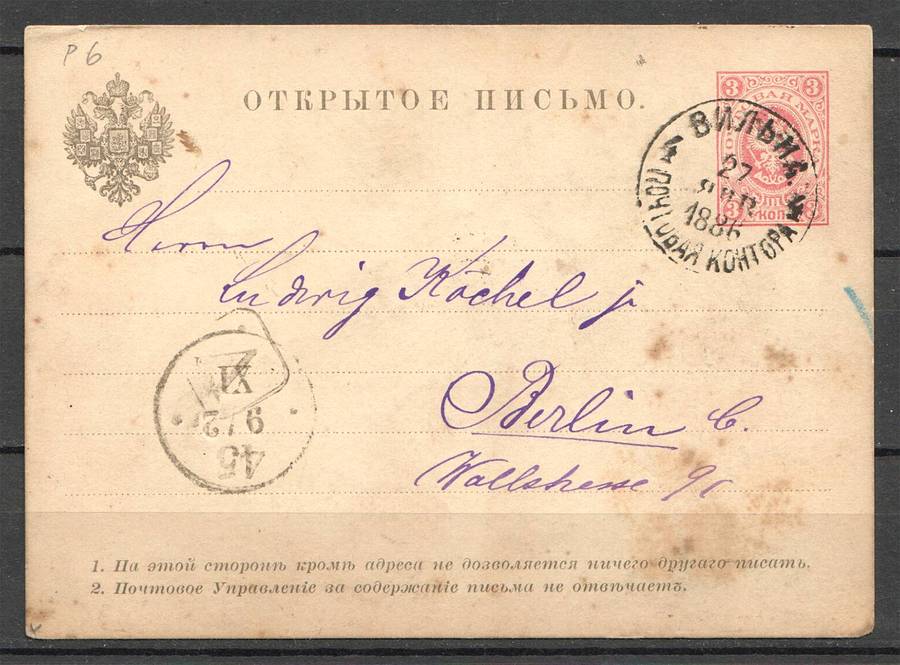 P 6
ОТКРЫТОЕ ПИСЬМО.
3 3
МАРКА
3 КОП 3
ВИЛЬНА.
27
ЯНВ
1886
ПОЧТОВАЯ КОНТОРА
Herrn
Ludwig Köchel jr
Berlin C.
Wallstrasse
XI
9 / 2
45
1. На этой сторонѣ кромѣ адреса не дозволяется ничего другаго писать.
2. Почтовое Управленіе за содержаніе письма не отвѣчаетъ.